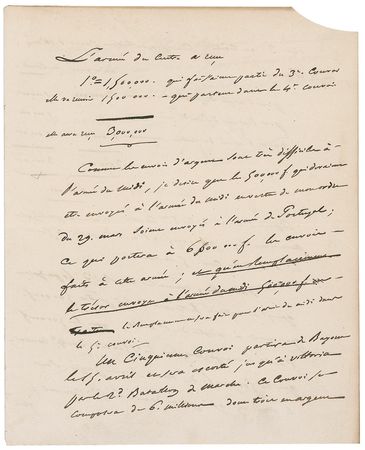 L'armée du centre a reçu
1° = 1,500,000. qui faisaient partie du 3e Convoi
elle recevra 1,500,000. = qui partent dans le 4e convoi
elle aura reçu 3,000,000
Comme les envois d'argent sont très difficiles à
l'armée du Midi, je désire que les 500,000 f qui devraient
être envoyés à l'armée du midi en vertu de mon ordre
du 29. mars, soient envoyés à l'armée de Portugal;
ce qui portera à 6,500,000 f. les envois
faits à cette armée; et qu'en remplacement
le trésor envoye à l'armée du midi 500,000 f
le remplacement sera fait pour l'armée du midi dans
le 5e convoi.
Un Cinquième Convoi partira de Bayonne
le 15 avril et sera escorté jusqu'à Vittoria
par le 2e Bataillon de Marche. Ce Convoi se
composera de 6. millions dont tiers en argent